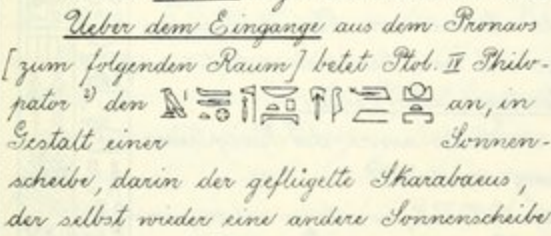 Ueber dem Eingange aus dem Pronaos
[zum folgenden Raum] betet Ptol. IV Philo-
pator ²) den an, in
Gestalt einer Sonnen-
scheibe, darin der geflügelte Skarabaeus,
der selbst wieder eine andere Sonnenscheibe